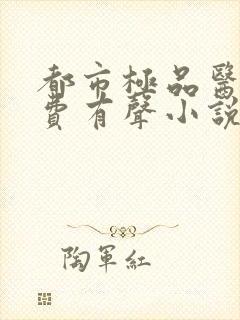 都市極品醫
費有聲小說
陶軍紅